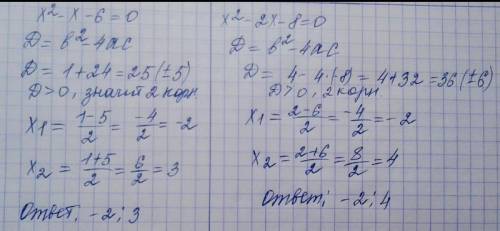 x² - x - 6 = 0
D = b² - 4ac
D = 1 + 24 = 25 (±5)
D > 0, значит 2 корн
x1 = (1-5)/2 = -4/2 = -2
x2 = (1+5)/2 = 6/2 = 3
Ответ, -2; 3
x² - 2x - 8 = 0
D = b² - 4ac
D = 4 - 4·(-8) = 4 + 32 = 36 (±6)
D > 0, 2 корн
x1 = (2-6)/2 = -4/2 = -2
x2 = (2+6)/2 = 8/2 = 4
Ответ; -2; 4